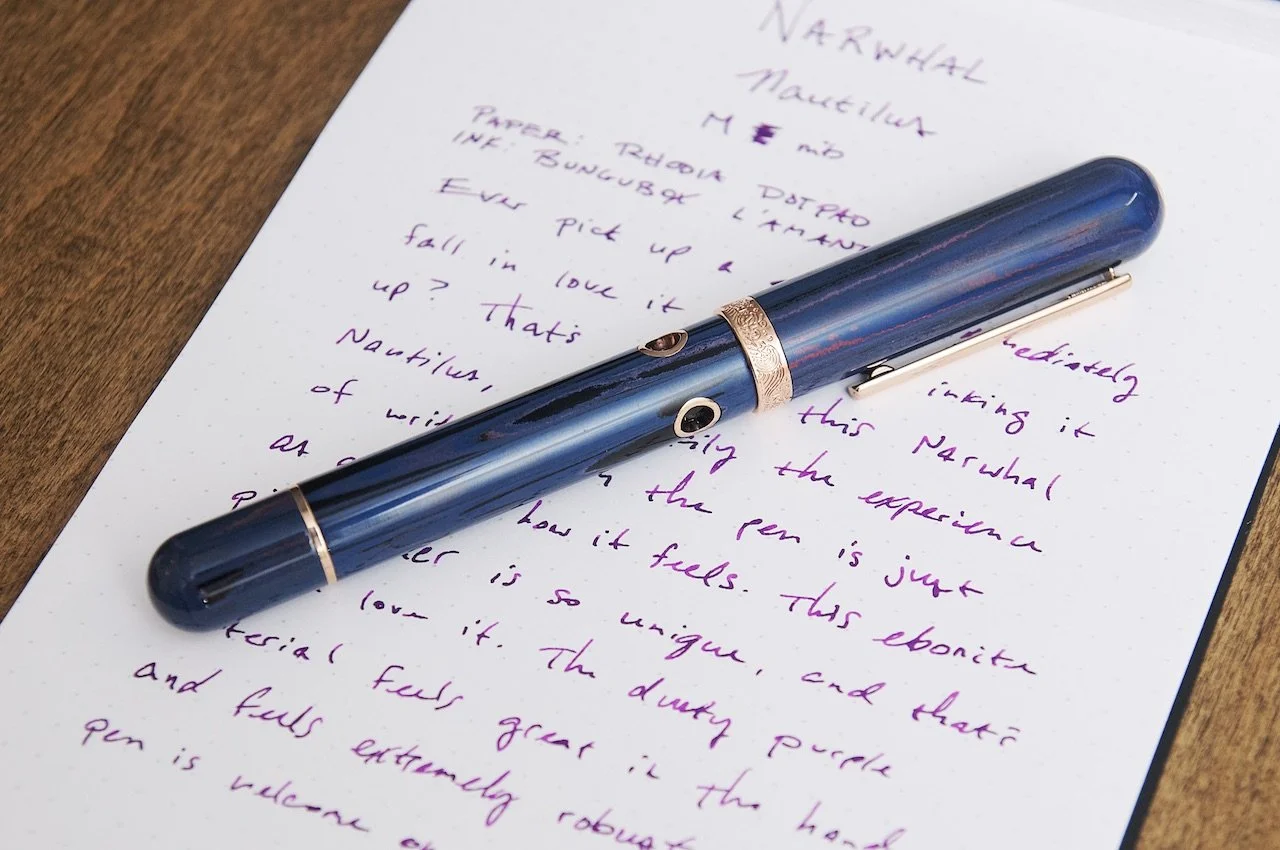 NARWHAL
Nautilus
M nib
PAPER: RHODIA DOTPAD
INK: BUNGUBOX L'AMANT
Ever pick up a mediately
fall in love it inking it
up? That's this Narwhal
Nautilus, ily the experience
of writ the pen is just
as how it feels. This ebonite
er is so unique, and that's
love it. The dusty purple
terial feels great in the hand
and feels extremely robust
pen is welcome